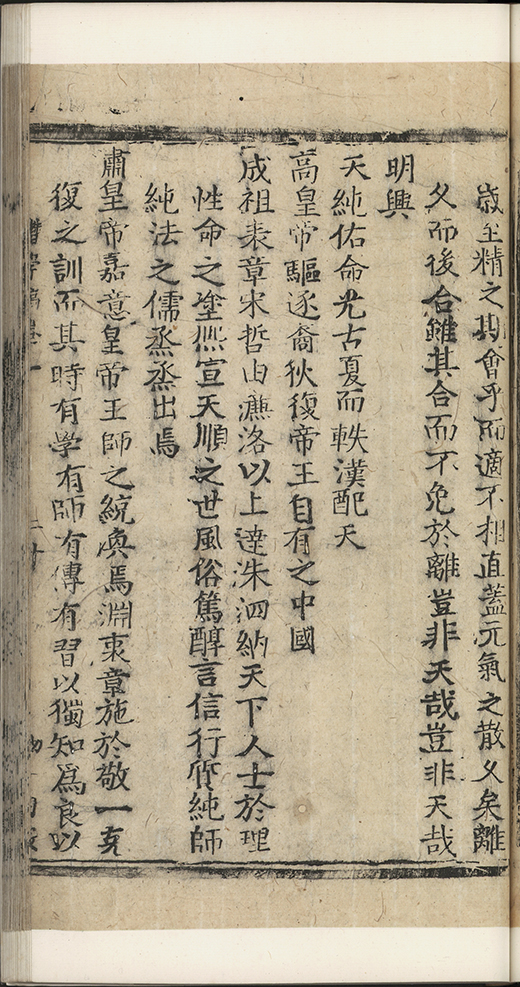 歲至精之期會乎而適不相直蓋元氣之散久矣離
久而後合雖其合而不免於離豈非天哉豈非天哉
明興
天純佑命光古夏而軼漢配天
高皇帝驅逐裔狄復帝王自有之中國
成祖表章宋哲由濂洛以上達洙泗納天下人士於理
性命之塗熈宣天順之世風俗篤醇言信行質純師
純法之儒烝烝出焉
肅皇帝嘉意皇帝王師之統煥焉淵衷章施於敬一克
復之訓而其時有學有師有傳有習以獨知為良以